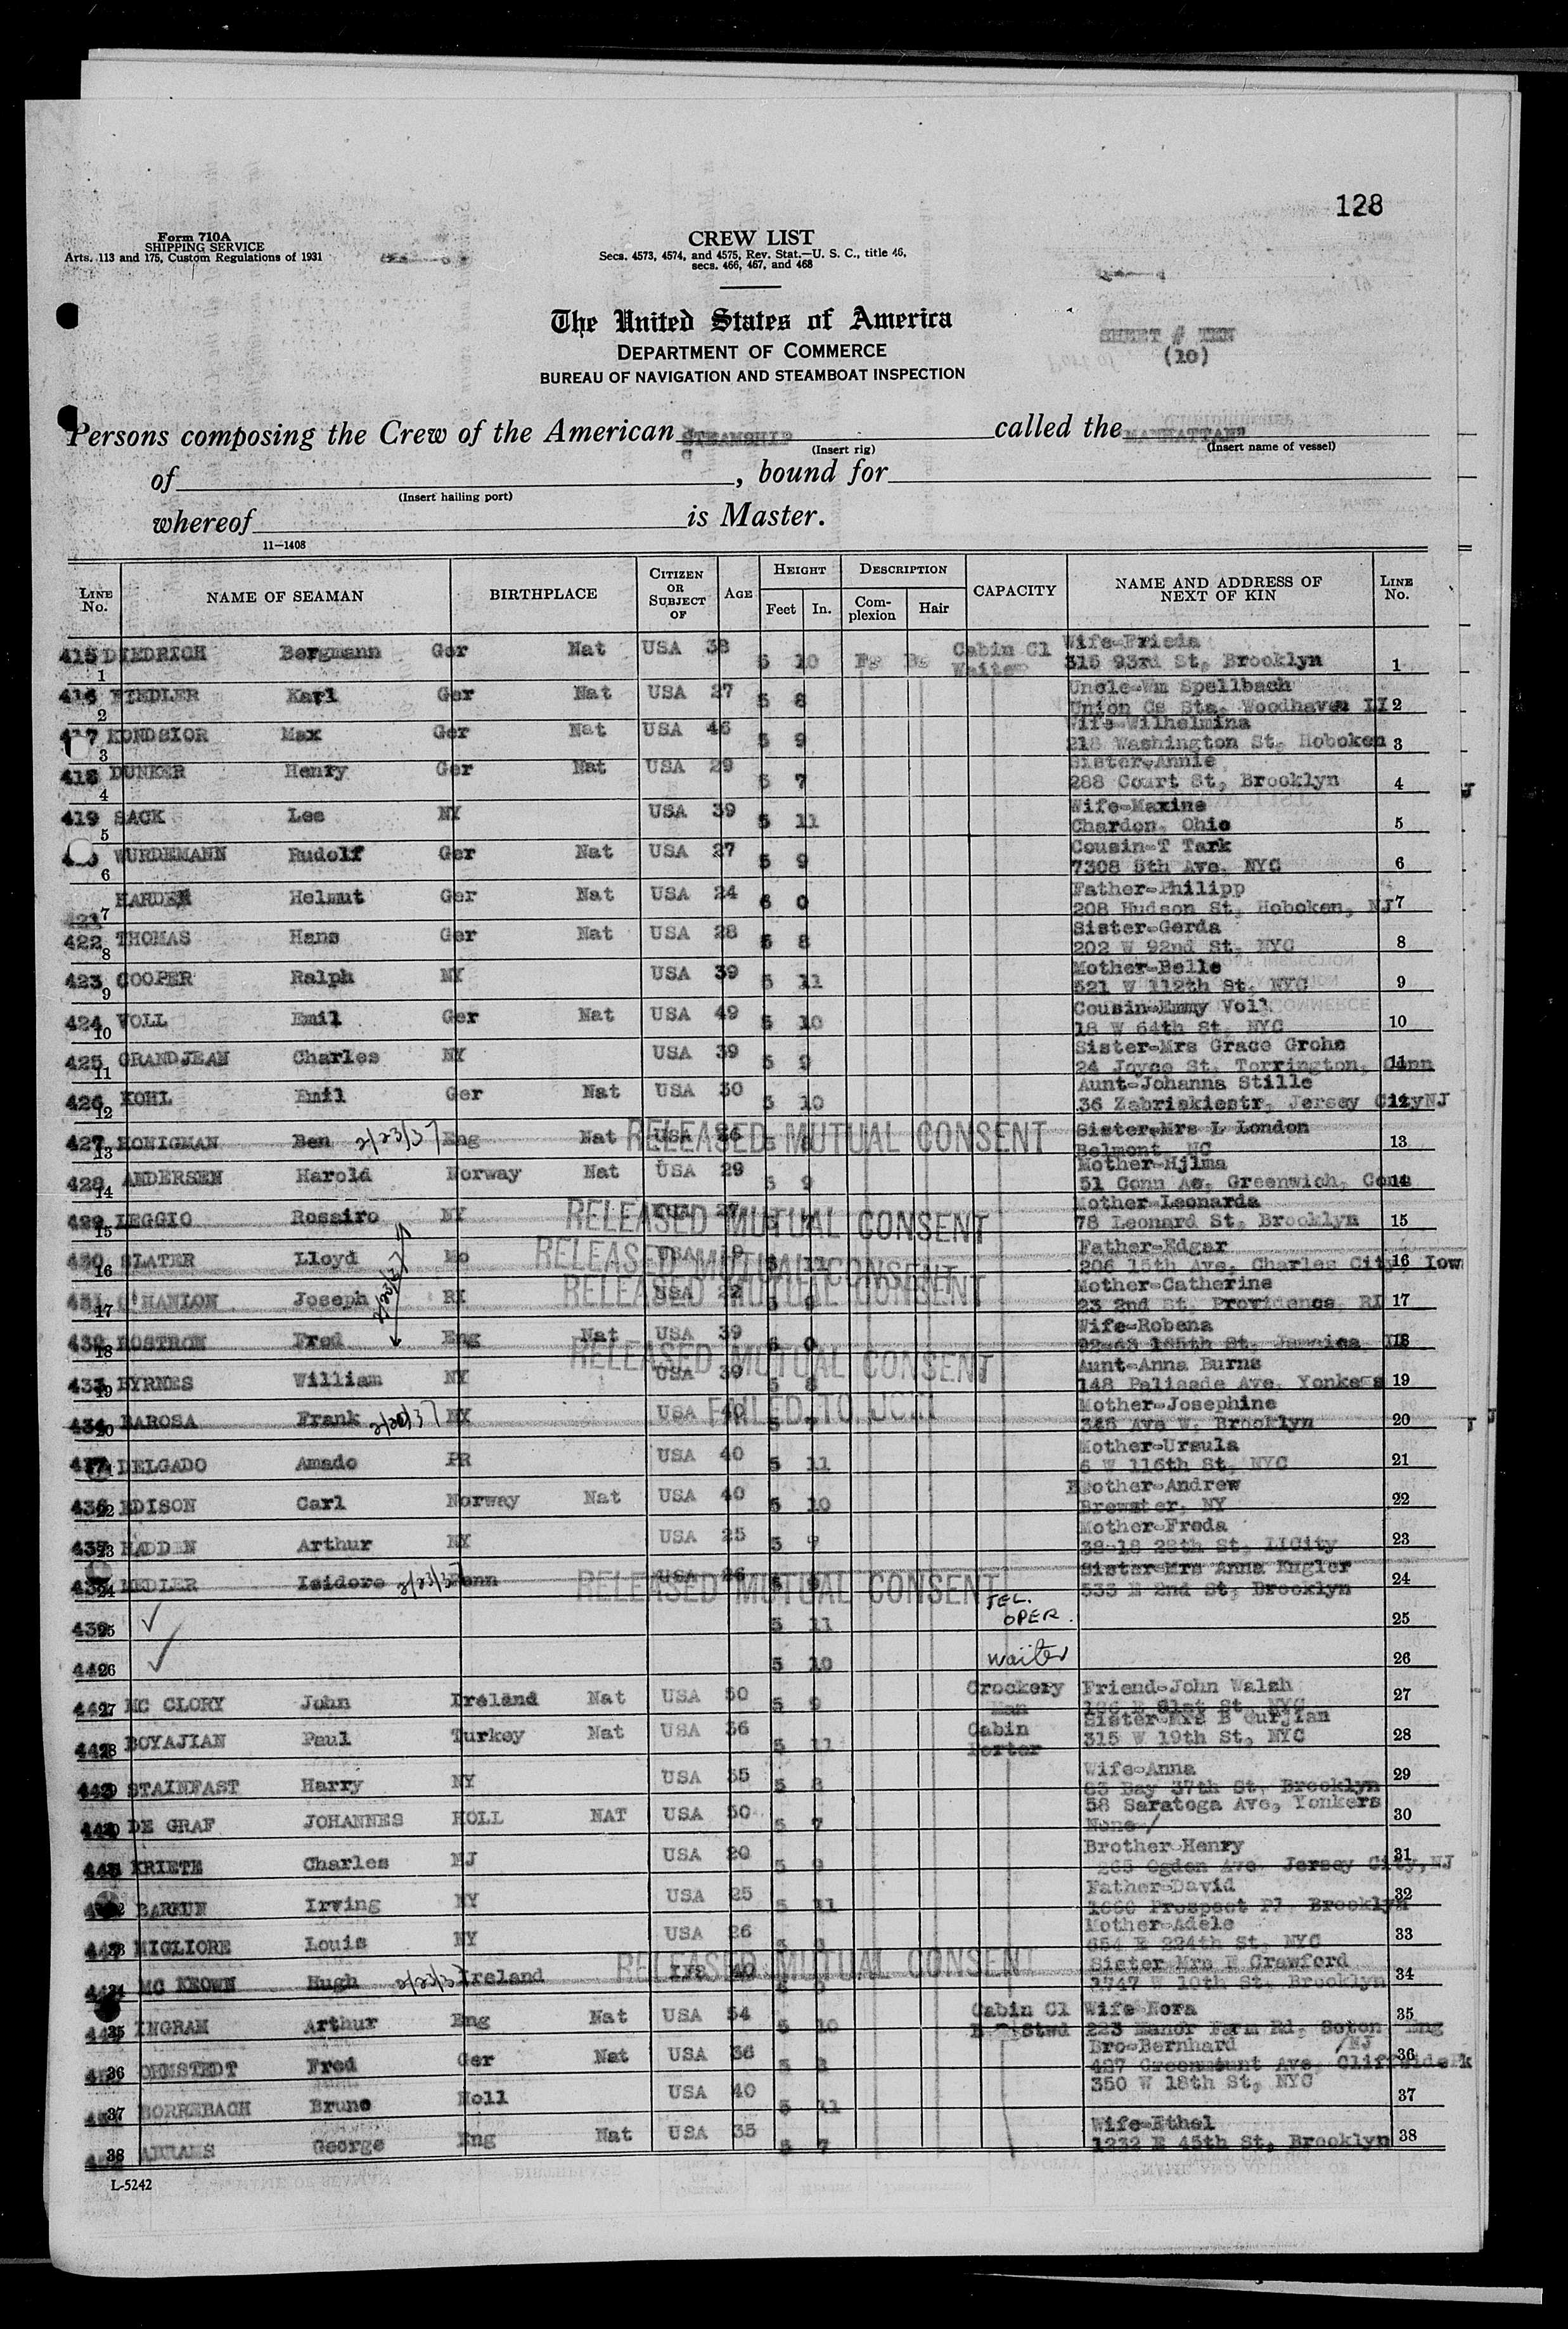 128
Form 710A
SHIPPING SERVICE
Arts. 113 and 175, Custom Regulations of 1931
CREW LIST
Secs. 4573, 4574, and 4575, Rev. Stat.—U. S. C., title 46,
secs. 466, 467, and 468
The United States of America
DEPARTMENT OF COMMERCE
BUREAU OF NAVIGATION AND STEAMBOAT INSPECTION
SHEET # TEN
(10)
Persons composing the Crew of the American STEAMSHIP called the MANHATTAN
(Insert rig) (Insert name of vessel)
of , bound for
(Insert hailing port)
whereof is Master.
11—1408
LINE No. NAME OF SEAMAN BIRTHPLACE CITIZEN OR SUBJECT OF AGE HEIGHT Feet In. DESCRIPTION Complexion Hair CAPACITY NAME AND ADDRESS OF NEXT OF KIN LINE No.
415 1 DIEDRICH Bergmann Ger Nat USA 38 5 10 Cabin Cl Waiter Wife-Frieda 315 93rd St, Brooklyn 1
416 2 FIEDLER Karl Ger Nat USA 27 5 8 Uncle-Wm Spellbach Union Cs Sta, Woodhaven LI 2
417 3 KONDSIOR Max Ger Nat USA 46 5 9 Wife-Wilhelmina 218 Washington St, Hoboken 3
418 4 DUNKER Henry Ger Nat USA 29 5 7 Sister-Annie 288 Court St, Brooklyn 4
419 5 SACK Lee NY USA 39 5 11 Wife-Maxine Chardon, Ohio 5
6 WURDEMANN Rudolf Ger Nat USA 27 5 9 Cousin-T Tark 7308 5th Ave, NYC 6
421 7 HARDER Helmut Ger Nat USA 24 6 0 Father-Philipp 208 Hudson St, Hoboken, NJ 7
422 8 THOMAS Hans Ger Nat USA 28 5 8 Sister-Gerda 202 W 92nd St, NYC 8
423 9 COOPER Ralph NY USA 39 5 11 Mother-Belle 521 W 112th St, NYC 9
424 10 VOLL Emil Ger Nat USA 49 5 10 Cousin-Emmy Voll 18 W 64th St, NYC 10
425 11 GRANDJEAN Charles NY USA 39 5 9 Sister-Mrs Grace Grohs 24 Joyce St, Torrington, Conn 11
426 12 KOHL Emil Ger Nat USA 30 5 10 Aunt-Johanna Stille 36 Zabriskiestr, Jersey City NJ 12
427 13 HONIGMAN Ben 2/23/37 Eng Nat USA 26 5 8 RELEASED MUTUAL CONSENT Sister-Mrs L London Belmont, NC 13
428 14 ANDERSEN Harold Norway Nat USA 29 5 9 Mother-Hjlma 51 Conn Ae, Greenwich, Conn 14
429 15 LEGGIO Rossiro NY USA 27 RELEASED MUTUAL CONSENT Mother-Leonarda 78 Leonard St, Brooklyn 15
430 16 SLATER Lloyd Mo USA 5 11 RELEASED MUTUAL CONSENT Father-Edgar 206 15th Ave, Charles City, Iow 16
431 17 O'HANLON Joseph RI USA 22 5 9 RELEASED MUTUAL CONSENT Mother-Catherine 23 2nd St, Providence, RI 17
432 18 ROSTROM Fred Eng Nat USA 39 6 0 RELEASED MUTUAL CONSENT Wife-Robena 92-43 165th St, Jamaica LI 18
433 19 BYRNES William NY USA 39 5 8 Aunt-Anna Burns 148 Palisade Ave, Yonkers 19
434 20 BAROSA Frank NY USA 40 5 7 FAILED TO JOIN Mother-Josephine 346 Ave W, Brooklyn 20
21 DELGADO Amado PR USA 40 5 11 Mother-Ursula 6 W 116th St, NYC 21
436 22 EDISON Carl Norway Nat USA 40 5 10 Brother-Andrew Brewster, NY 22
437 23 HADDEN Arthur NY USA 25 5 7 Mother-Freda 38-18 28th St, LICity 23
24 MEDLER Isidore 2/23/37 Penn USA 26 5 9 RELEASED MUTUAL CONSENT Sister-Mrs Anna Engler 533 E 2nd St, Brooklyn 24
439 25 ✓ 5 11 TEL. OPER. 25
440 26 ✓ 5 10 waiter 26
441 27 MC CLORY John Ireland Nat USA 50 5 9 Crockery Man Friend-John Walsh 126 E 81st St, NYC 27
442 28 BOYAJIAN Paul Turkey Nat USA 36 5 11 Cabin Porter Sister-Mrs B Gurjian 315 W 19th St, NYC 28
443 29 STAINFAST Harry NY USA 35 5 8 Wife-Anna 83 Bay 37th St, Brooklyn 29
444 30 DE GRAF JOHANNES HOLL NAT USA 50 5 7 58 Saratoga Ave, Yonkers None/ 30
445 31 KRIETE Charles NJ USA 20 5 9 Brother-Henry 265 Ogden Ave Jersey City, NJ 31
32 BARKUN Irving NY USA 25 5 11 Father-David Prospect Pl, Brooklyn 32
447 33 MIGLIORE Louis NY USA 26 5 Mother-Adele 654 E 224th St, NYC 33
34 MC KEOWN Hugh 2/23/3 Ireland 40 RELEASED MUTUAL CONSENT Sister Mrs E Crawford 1747 W 10th St, Brooklyn 34
35 INGRAM Arthur Eng Nat USA 54 5 10 Cabin Cl Stwd Wife Nora 223 Manor Farm Rd, Soton Eng 35
36 OHMSTEDT Fred Ger Nat USA 36 5 8 Bro-Bernhard 427 Greenmount Ave, Cliffside Pk /NJ 36
37 BORREBACH Bruno Holl USA 40 5 11 350 W 18th St, NYC 37
38 ABRAMS George Eng Nat USA 35 5 7 Wife-Ethel 1232 E 45th St, Brooklyn 38
L-5242